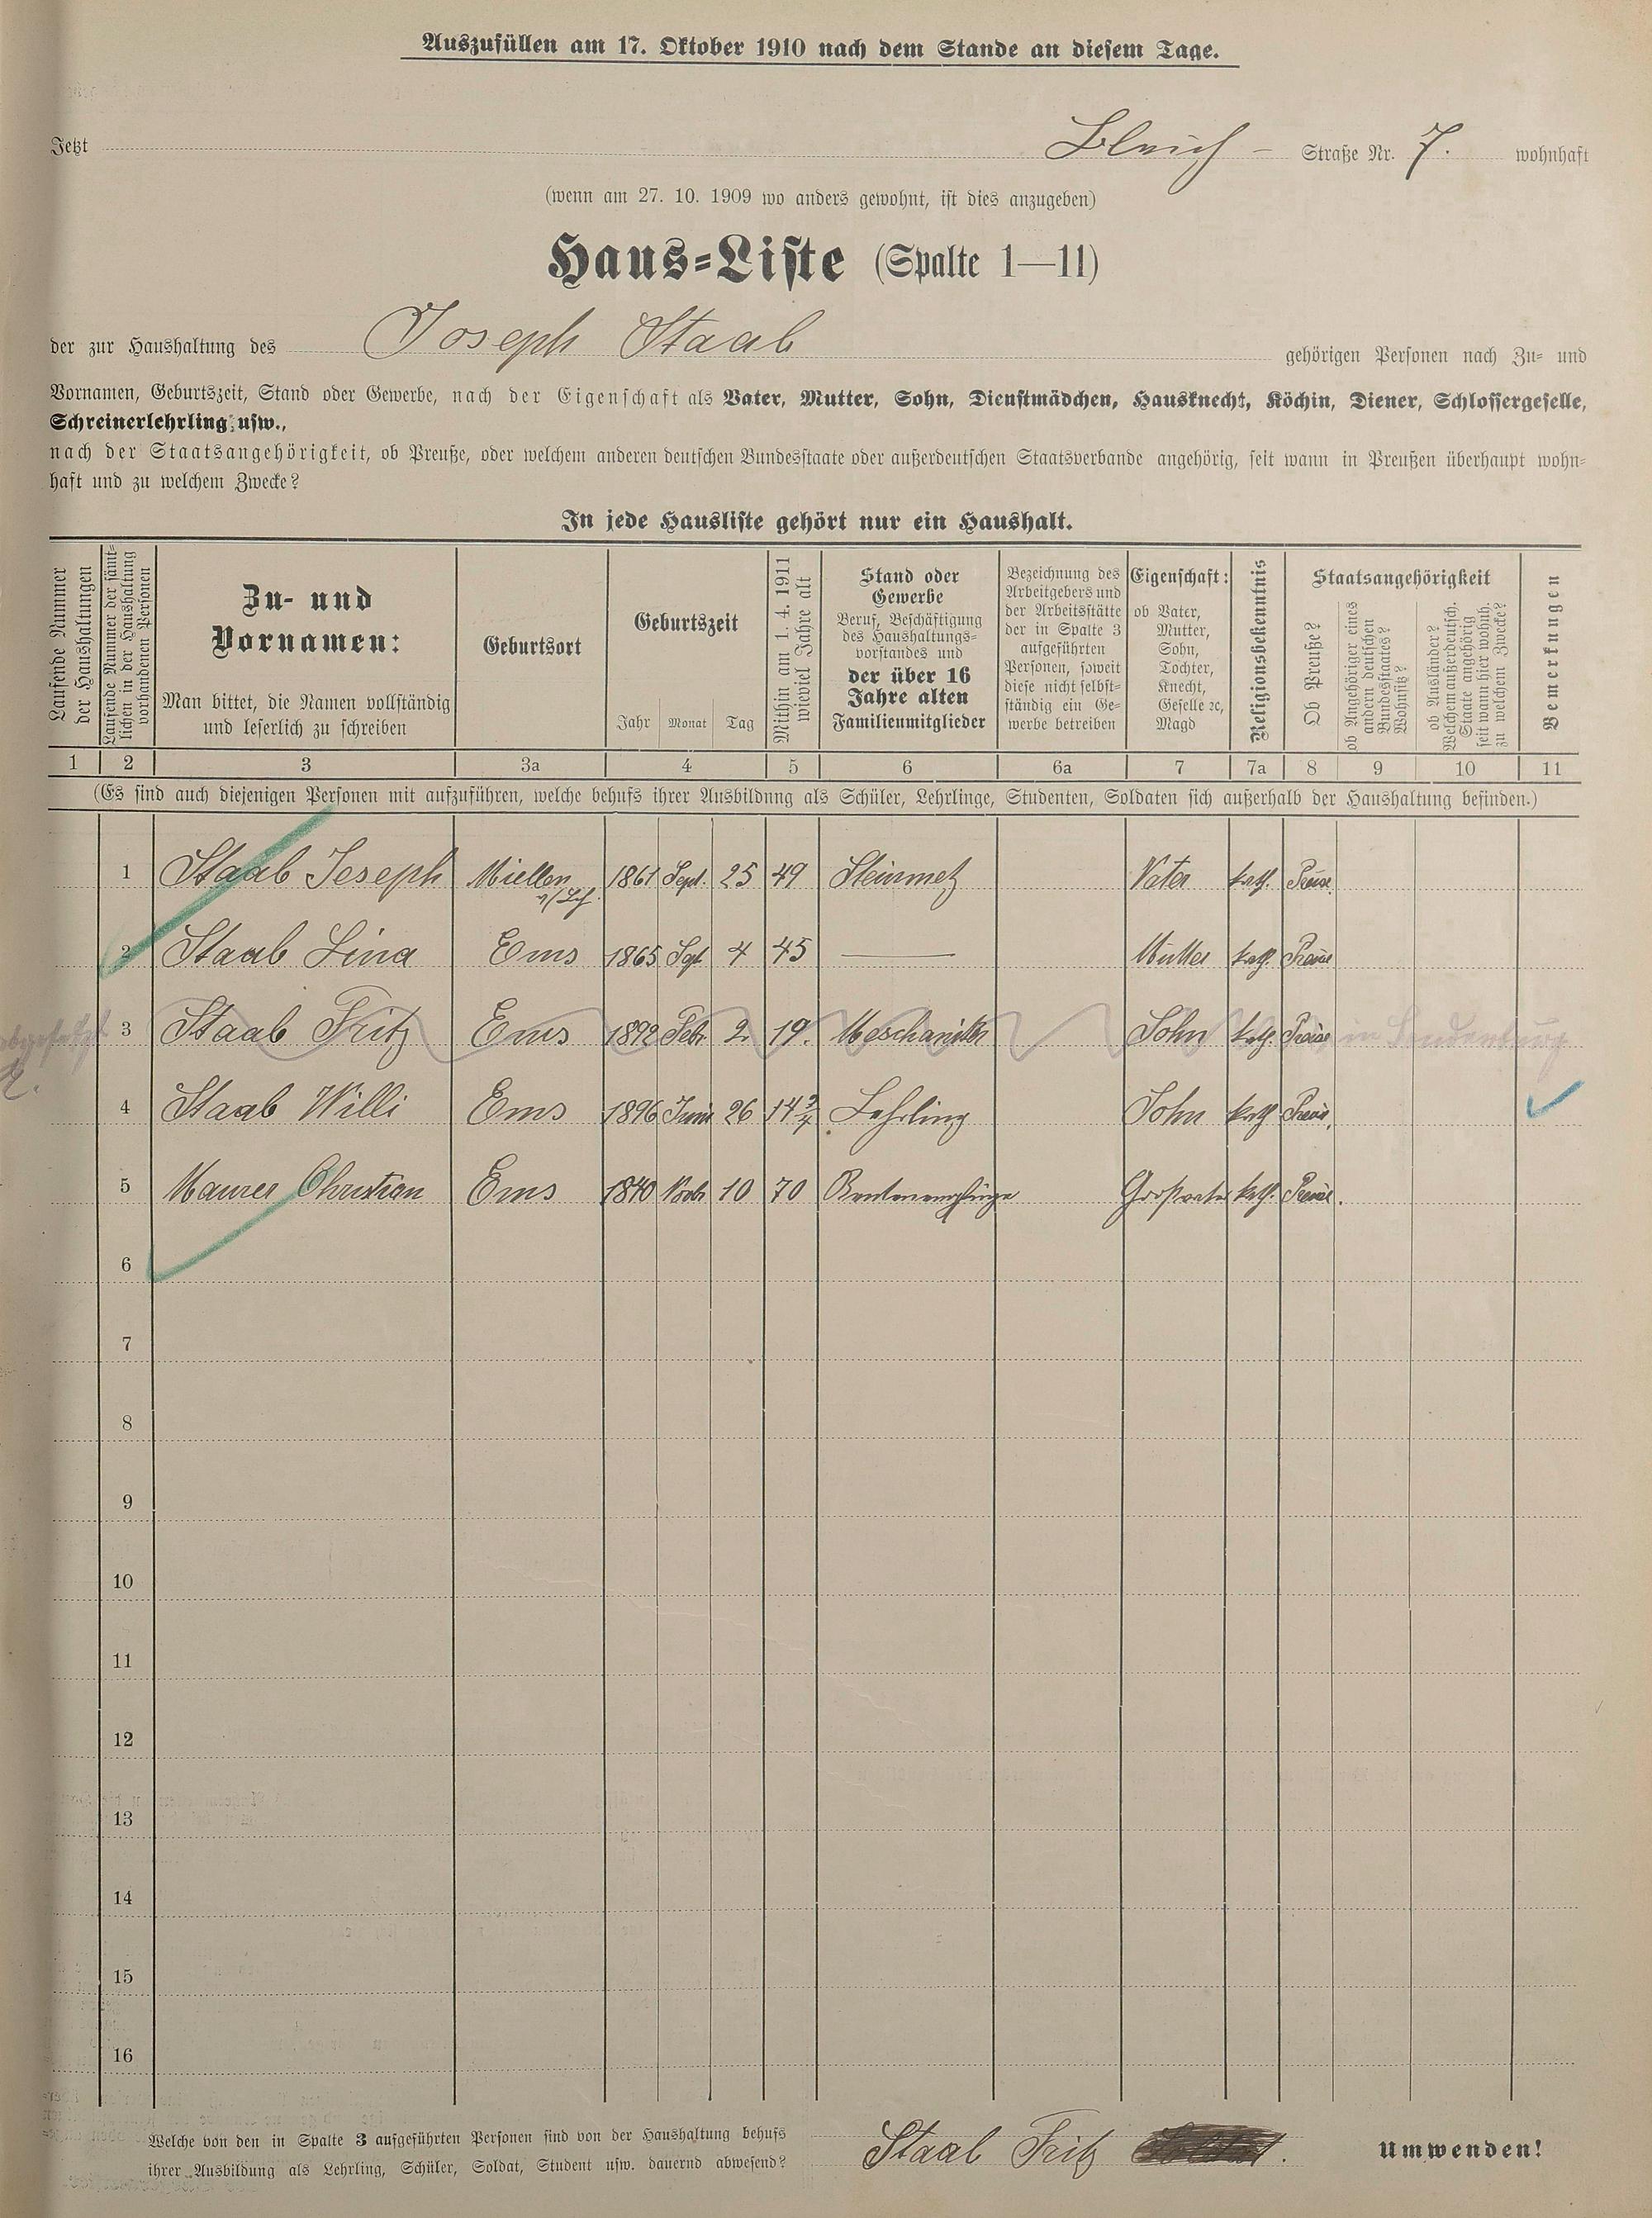 Auszufüllen am 17. Oktober 1910 nach dem Stande an diesem Tage.
Jetzt Bleich- Straße Nr. 7. wohnhaft
(wenn am 27. 10. 1909 wo anders gewohnt, ist dies anzugeben)
Haus-Liste (Spalte 1—11)
der zur Haushaltung des Joseph Staab gehörigen Personen nach Zu- und
Vornamen, Geburtszeit, Stand oder Gewerbe, nach der Eigenschaft als Vater, Mutter, Sohn, Dienstmädchen, Hausknecht, Köchin, Diener, Schlossergeselle,
Schreinerlehrling usw.,
nach der Staatsangehörigkeit, ob Preuße, oder welchem anderen deutschen Bundesstaate oder außerdeutschen Staatsverbande angehörig, seit wann in Preußen überhaupt wohn-
haft und zu welchem Zwecke?
In jede Hausliste gehört nur ein Haushalt.
Laufende Nummer
der Haushaltungen
Laufende Nummer der sämt-
lichen in der Haushaltung
vorhandenen Personen
Zu- und
Vornamen:
Man bittet, die Namen vollständig
und leserlich zu schreiben
Geburtsort
Geburtszeit
Jahr Monat Tag
Mithin am 1. 4. 1911
wieviel Jahre alt
Stand oder
Gewerbe
Beruf, Beschäftigung
des Haushaltungs-
vorstandes und
der über 16
Jahre alten
Familienmitglieder
Bezeichnung des
Arbeitgebers und
der Arbeitsstätte
der in Spalte 3
aufgeführten
Personen, soweit
diese nicht selbst-
ständig ein Ge-
werbe betreiben
Eigenschaft:
ob Vater,
Mutter,
Sohn,
Tochter,
Knecht,
Geselle ꝛc,
Magd
Religionsbekenntnis
Staatsangehörigkeit
Ob Preuße?
ob Angehöriger eines
andern deutschen
Bundesstaates?
Wohnsitz?
ob Ausländer?
Welchem außerdeutsch.
Staate angehörig
seit wann hier wohnh.
zu welchem Zwecke?
Bemerkungen
1 2 3 3a 4 5 6 6a 7 7a 8 9 10 11
(Es sind auch diejenigen Personen mit aufzuführen, welche behufs ihrer Ausbildung als Schüler, Lehrlinge, Studenten, Soldaten sich außerhalb der Haushaltung befinden.)
1 Staab Joseph Miellen 1861 Sept. 25 49 Steinmetz Vater kath. Preuse
2 Staab Lina Ems 1865 Sept. 4 45 — Mutter kath. Preuse
3 Staab Fritz Ems 1892 Febr. 2. 19. Meschaniker Sohn kath. Preuse
4 Staab Willi Ems 1896 Juni 26 14¾ Lehrling Sohn kath. Preuse
5 Maurer Christian Ems 1840 Novbr 10 70 Rentenempfänger Grosvater kath. Preuse.
6
7
8
9
10
11
12
13
14
15
16
Welche von den in Spalte 3 aufgeführten Personen sind von der Haushaltung behufs
ihrer Ausbildung als Lehrling, Schüler, Soldat, Student usw. dauernd abwesend?
Staab Fritz
Umwenden!